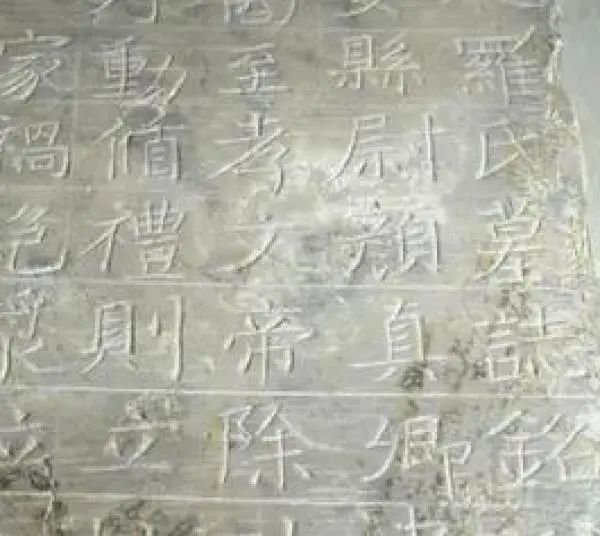 羅氏墓誌銘
縣尉顏真卿
至孝文帝除
動循禮則立
家禍色立